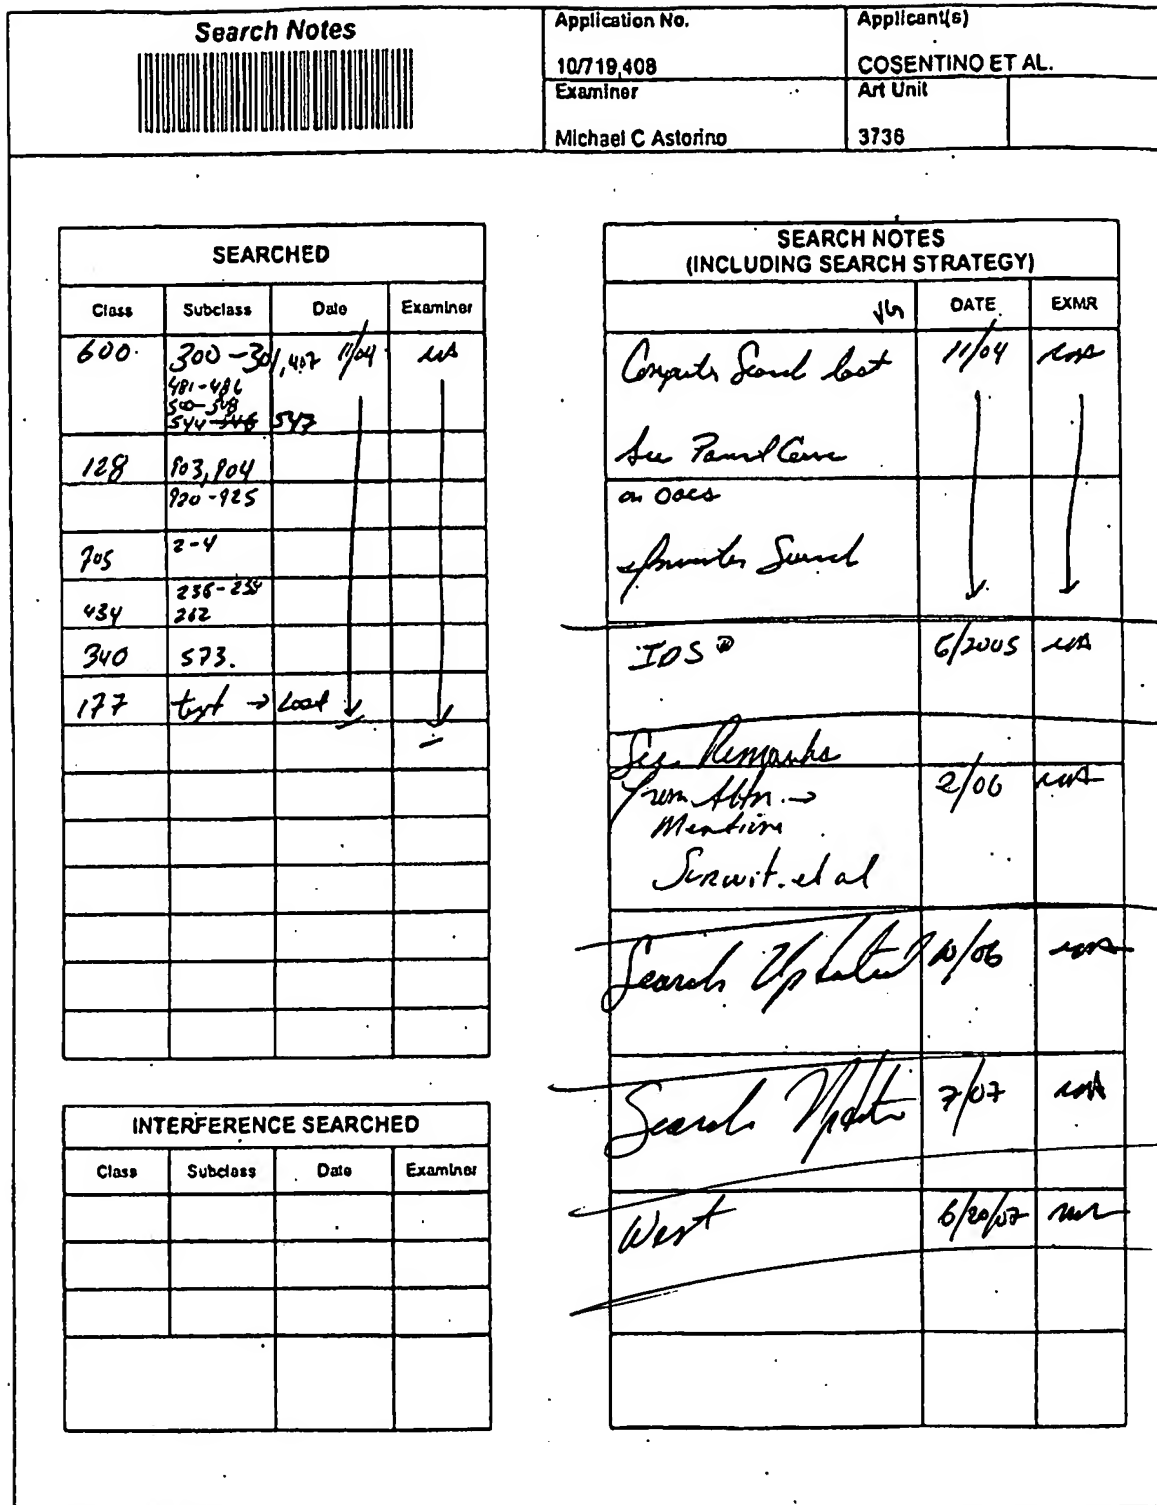 Search Notes
Application No.
10/719,408
Applicant(s)
COSENTINO ET AL.
Examiner
Michael C Astorino
Art Unit
3736
SEARCHED
Class Subclass Date Examiner
600 300-301,407 11/04
481-486
500-508
544-546 547
128 903,904
920-925
705 2-4
434 236-238
262
340 573.
177 text →
INTERFERENCE SEARCHED
Class Subclass Date Examiner
SEARCH NOTES
(INCLUDING SEARCH STRATEGY)
DATE EXMR
Computer Search 11/04
See
on
Search
IDS 6/2005
See Remarks
from Attn. → 2/06
Surwit. et al
Search Updated 10/06
Search Update 7/07
West 6/20/07